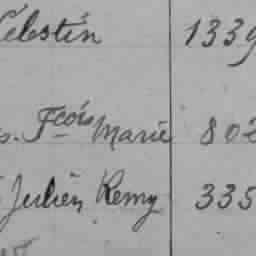 Celestin 1339
Fcois Marie 802
Julien Remy 335